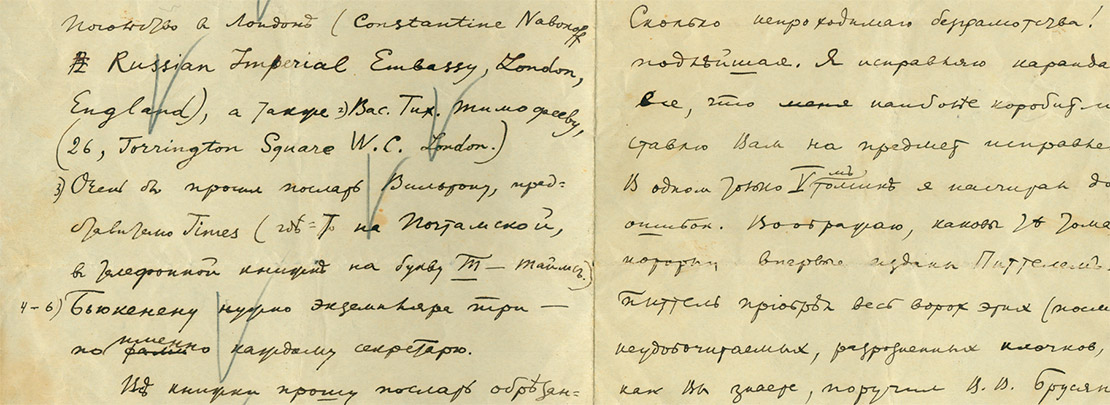 посольство в Лондонѣ (Constantine Nabokoff
Russian Imperial Embassy, London,
England), а также 2) Вас. Тих. Тимофееву,
(26, Torrington Square W.C. London.)
3) Очень бы просил послать Вильтону, пред=
ставителю Times (гдѣ=то на Почтамской,
в телефонной книжкѣ на букву Т — Таймсъ.)
4–6) Бьюкенену нужно экземпляра три —
по именно каждому секретарю.
Всѣ книжки прошу послать обрѣзан=
Сколько непроходимаго безграмотства!
подлѣйшая. Я исправляю каранда
все, что меня наиболѣе коробит и
ставлю Вам на предмет исправле
В одном только V томикѣ я насчитал до
ошибок. Воображаю, каковы тѣ тома
которые впервые изданы Питтелемъ.
Питтель пріобрѣл весь ворох этих (посм
неудобочитаемых, разрозненных клочков,
как Вы знаете, поручил В. В. Брусян